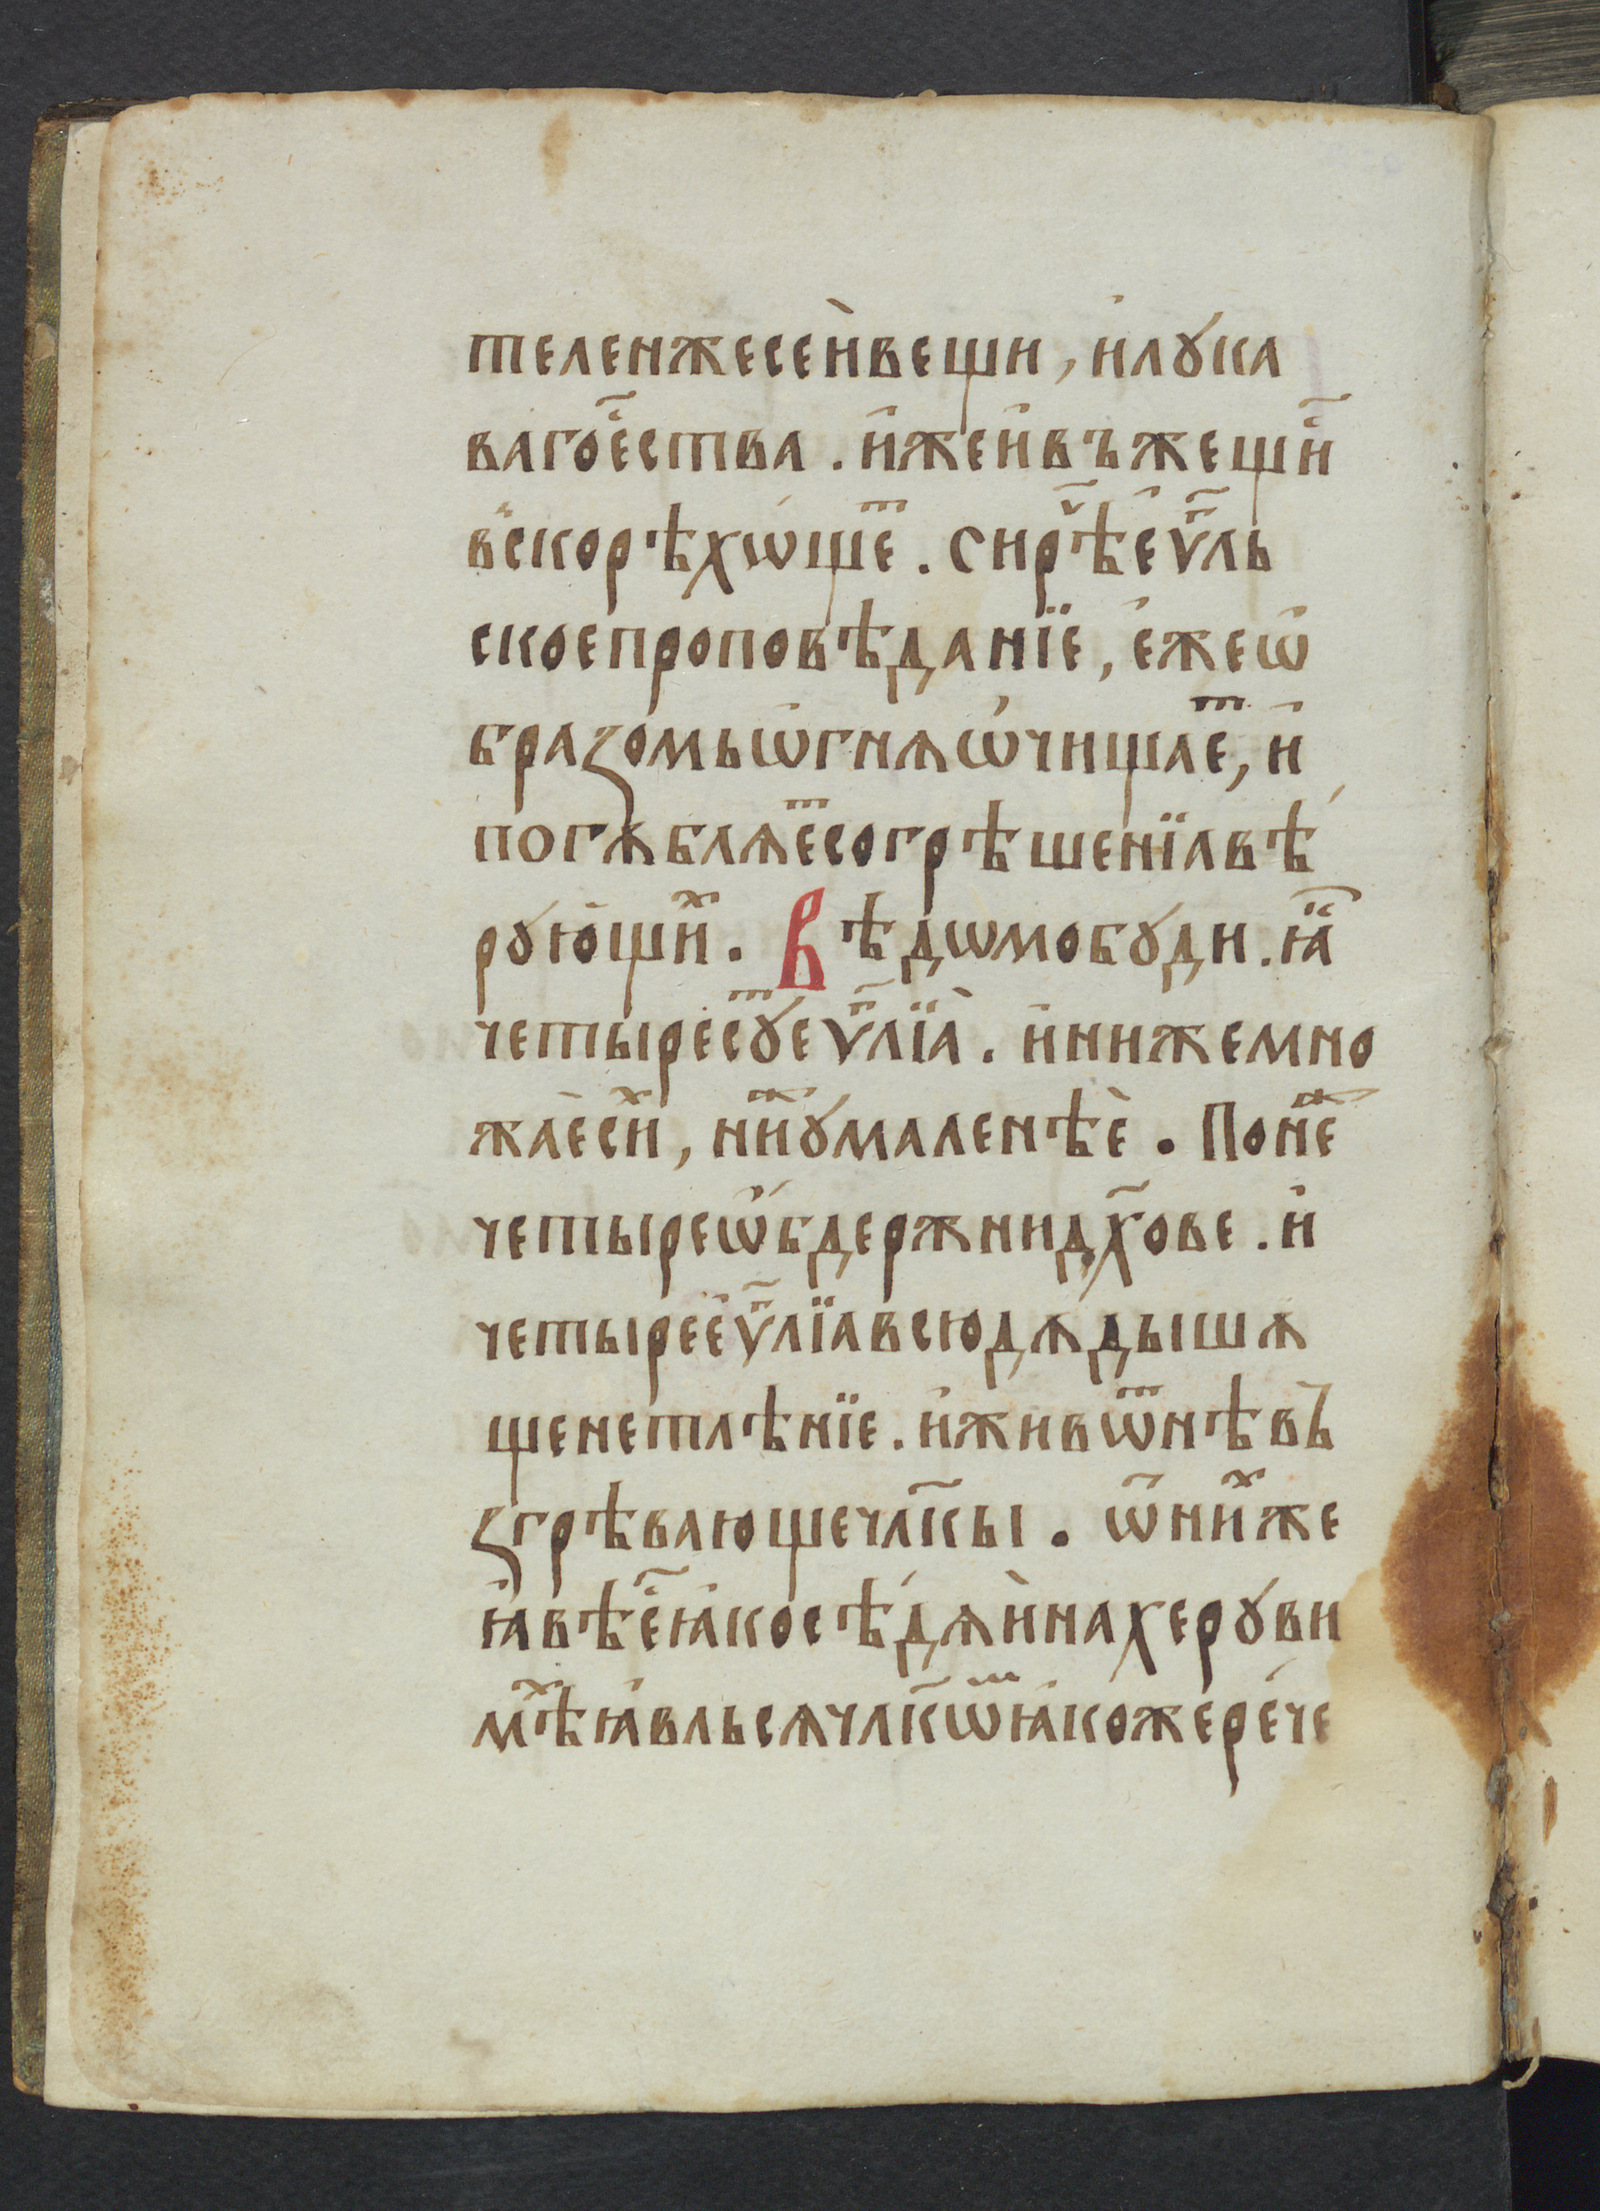 телен же сеѝ вещи, и҆ лꙋка
ваго е҆҃ства. и҆же и҆ въжещи҆҃
вскорѣ хѡ́щеⷮ. сирѣⷱ҇ е҆ѵⷢ҇ль
ское проповѣданїе, е҆же ѡ҆
бразомь ѡ҆гнѧ ѡ҆чищаеⷮ, и҆
погѫблѧеⷮ согрѣшенїа вѣ́
рꙋю҆щиⷯ. Вѣдѡмо бꙋди. ꙗ҆҃
четыре сꙋⷮ еѵⷢ҇лїа̀. и҆ ниже мно
жа̀е сиⷯ, ниⷤ ꙋмаленѣѐ. Понеⷤ
четыре ѡ҆́бдержни дх҃ове. и҆
четыре е҆ѵⷢ҇лїа всюдѫ дышѫ
ще нетлѣнїе. и҆ живѡⷮнѣ въ
згрѣвающе чл҃кы. ѿ ниⷯже
ꙗ҆вѣ е҆҃ ꙗ҆ко сѣ́дѧѝ на херꙋви
мѣⷯ ꙗ҆вльсѧ чл҃кѡⷨ ꙗ҆коже ре́че